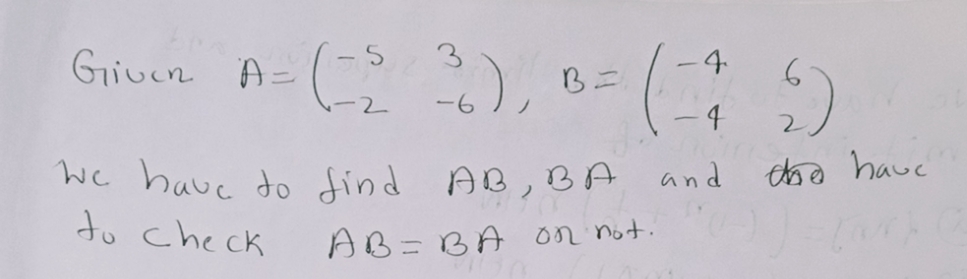 Given A = (-5 3 -2 -6), B = (-4 6 -4 2)
We have to find AB, BA and have
to check AB = BA or not.